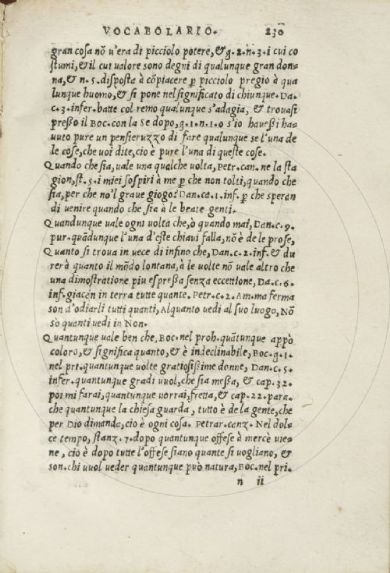 VOCABOLARIO. 230
gran cosa nõ v'era di picciolo potere, & g. 2. n. 3. i cui co
stumi, & il cui valore sono degni di qualunque gran don-
na, & n. 5. disposta à cõpiacere ꝑ picciolo pregio à qua
lunque huomo, & si pone nel significato di chiunque. Da.
c. 3. infer. batte col remo qualunque s'adagia, & trovasi
presso il Boc. con la Se dopo, g. 1. n. 1. o s'io havessi ha-
vuto pure un pensieruzzo di fare qualunque se l'una de
le cose, che voi dite, ciò è pure l'una di queste cose.
Quando che sia, vale una qualche volta, Petr. can. ne la sta
gion, st. 5. i miei sospiri à me ꝑ che non tolti, quando che
sia, per che nõ'l grave giogo? Dan. ca. 1. inf. ꝑ che speran
di venire quando che sia à le beate genti.
Quandunque vale ogni volta che, ò quando mai, Dan. c. 9.
pur. quãdunque l'una d'este chiavi falla, nõ è de le prose,
Quanto si trova in vece di infino che, Dan. c. 2. inf. & du
rerà quanto il mõdo lontana, à le volte nõ vale altro che
una dimostratione piu espressa senza eccettione, Da. c. 6.
inf. giacen in terra tutte quante. Petr. c. 2. Am. ma ferma
son d'odiarli tutti quanti, Alquanto vedi al suo luogo, Nõ
sò quanti vedi in Non.
Quantunque vale ben che, Boc. nel prob. quãtunque appò
coloro, & significa quanto, & è indeclinabile, Boc. g. 1.
nel pri. quantunque volte gratiosissime donne, Dan. c. 5.
infer. quantunque gradi vuol, che sia messa, & cap. 32.
poi mi farai, quantunque vorrai, fretta, & cap. 22. para.
che quantunque la chiesa guarda, tutto è de la gente, che
per Dio dimanda, ciò è ogni cosa. Petrar. canz. Nel dol-
ce tempo, stanz. 7. dopo quantunque offese à mercè vie-
ne, ciò è dopo tutte l'offese siano quante si vogliano, &
son. chi vuol veder quantunque può natura, Boc. nel pri.
n ii